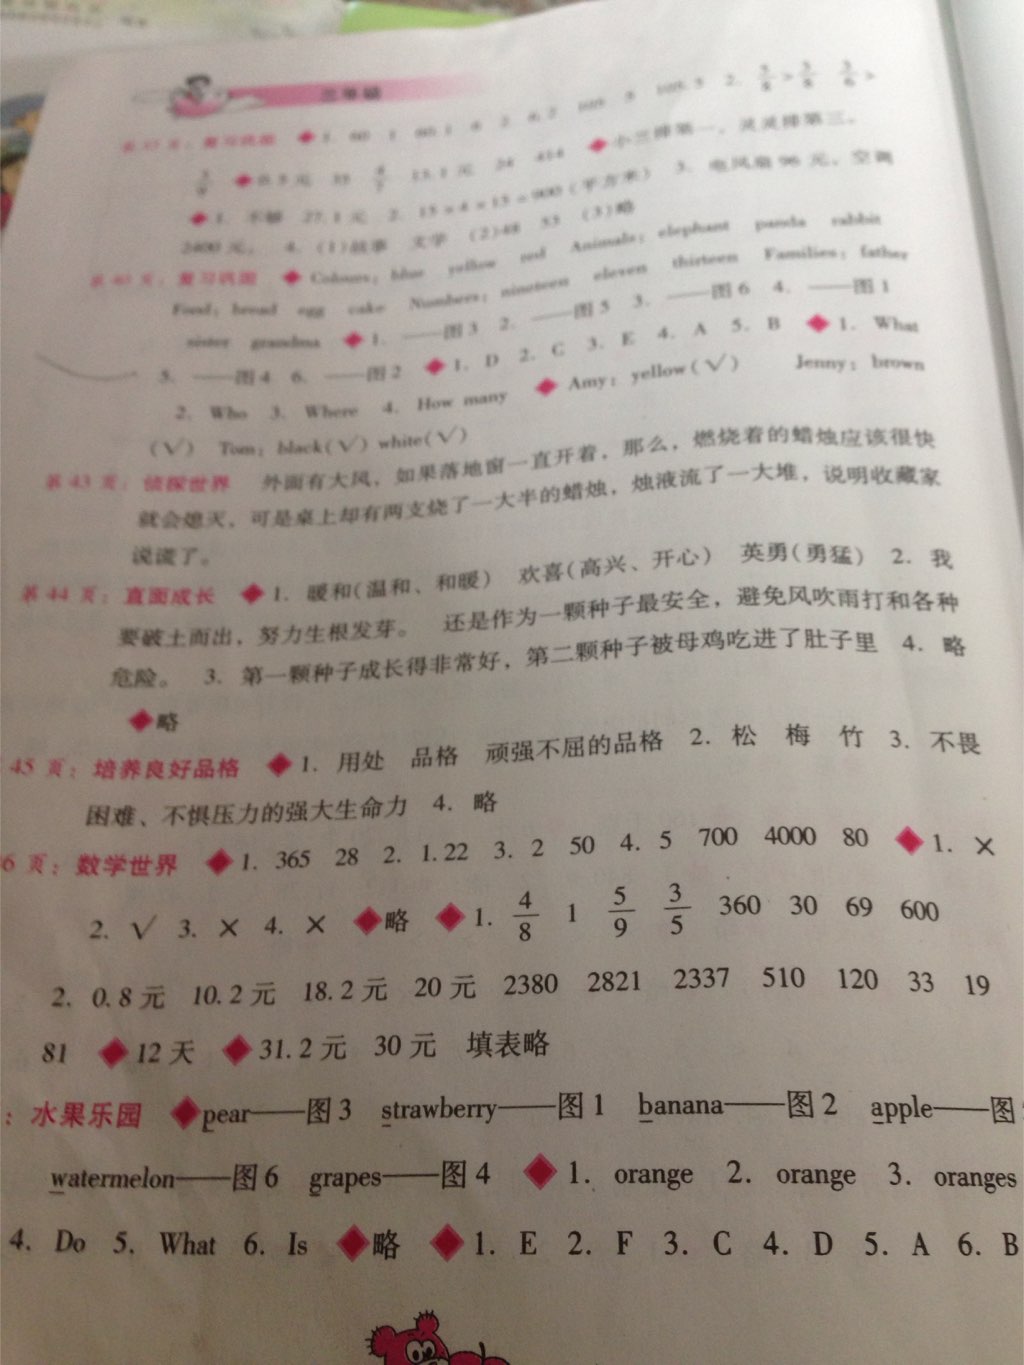 三年级
复习巩固 ◆1. 60 1
◆小兰排第一，灵灵排第三。
◆1. 不够 27.1元 2. 15×4×15=900(平方米) 3. 电风扇96元，空调
2400元。 4. (1)故事 文学 (2)48 53 (3)略
复习巩固 ◆Colours: blue yellow red Animals: elephant panda rabbit
Food: bread egg cake Numbers: nineteen eleven thirteen Families: father
sister grandma ◆1. ——图3 2. ——图5 3. ——图6 4. ——图1
5. ——图4 6. ——图2 ◆1. D 2. C 3. E 4. A 5. B ◆1. What
2. Who 3. Where 4. How many ◆Amy: yellow(√) Jenny: brown
(√) Tom: black(√) white(√)
第43页：侦探世界 外面有大风，如果落地窗一直开着，那么，燃烧着的蜡烛应该很快
就会熄灭，可是桌上却有两支烧了一大半的蜡烛，烛液流了一大堆，说明收藏家
说谎了。
第44页：直面成长 ◆1. 暖和(温和、和暖) 欢喜(高兴、开心) 英勇(勇猛) 2. 我
要破土而出，努力生根发芽。 还是作为一颗种子最安全，避免风吹雨打和各种
危险。 3. 第一颗种子成长得非常好，第二颗种子被母鸡吃进了肚子里 4. 略
◆略
45页：培养良好品格 ◆1. 用处 品格 顽强不屈的品格 2. 松 梅 竹 3. 不畏
困难、不惧压力的强大生命力 4. 略
6页：数学世界 ◆1. 365 28 2. 1.22 3. 2 50 4. 5 700 4000 80 ◆1. ×
2. √ 3. × 4. × ◆略 ◆1. 4/8 1 5/9 3/5 360 30 69 600
2. 0.8元 10.2元 18.2元 20元 2380 2821 2337 510 120 33 19
81 ◆12天 ◆31.2元 30元 填表略
：水果乐园 ◆pear——图3 strawberry——图1 banana——图2 apple——图
watermelon——图6 grapes——图4 ◆1. orange 2. orange 3. oranges
4. Do 5. What 6. Is ◆略 ◆1. E 2. F 3. C 4. D 5. A 6. B